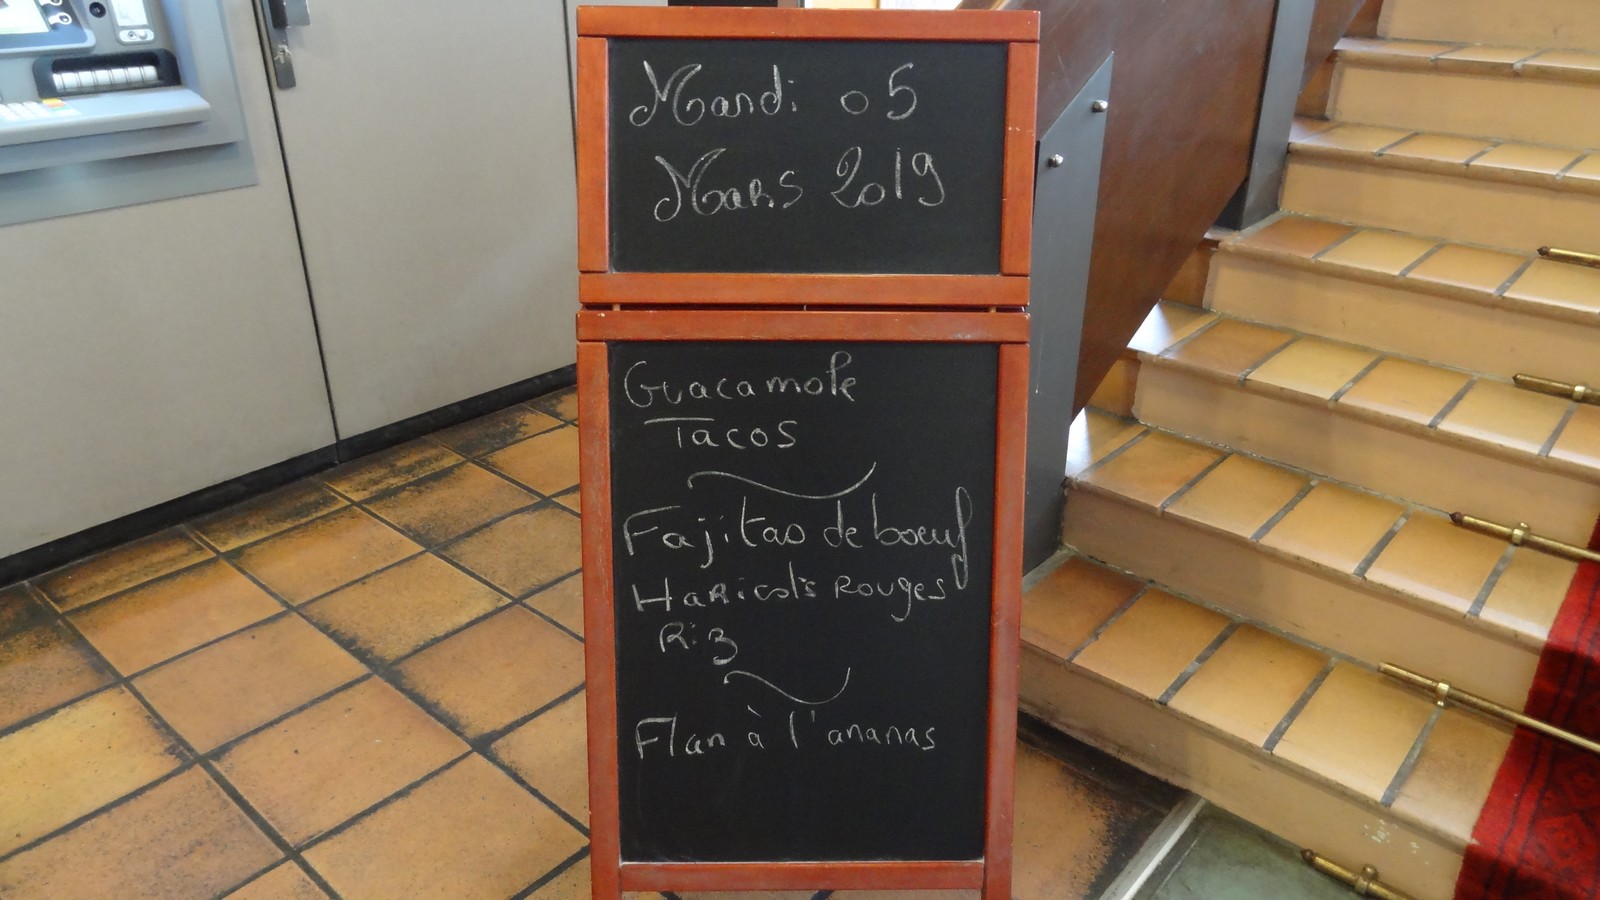 Mardi 05
Mars 2019
Guacamole
Tacos
Fajitas de boeuf
Haricots Rouges
Riz
Flan à l'ananas